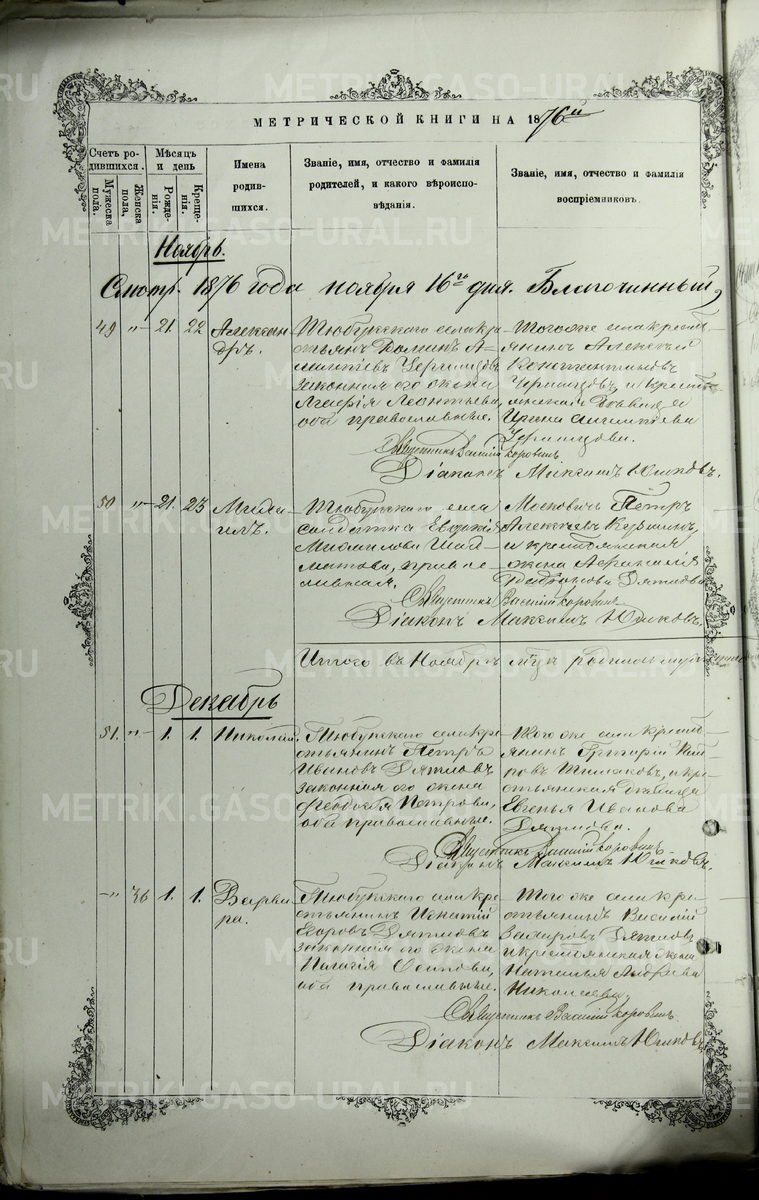 МЕТРИЧЕСКОЙ КНИГИ НА 1876й
Счетъ родившихся.
Мужеска пола.
Женска пола.
Мѣсяцъ и день
Рожденія.
Крещенія.
Имена родившихся.
Званіе, имя, отчество и фамилія родителей, и какого вѣроисповѣданія.
Званіе, имя, отчество и фамилія воспріемниковъ.
Ноябрь.
Смотр. 1876 года ноября 16го дня. Благочинный
49 " 21. 22 Алексан-
дръ.
Тюбукскаго села кре-
стьянинъ
законная его жена
Агафія Леонтьева,
оба православные.
Того же села кресть-
янинъ Алексѣй
Константиновъ
и кресть-
янская дѣвица
Ирина
Священникъ Василій Коровинъ
Діаконъ Максимъ Юшковъ.
50 " 21. 23 Миха-
илъ.
Тюбукскаго села
солдатка Евдокія
Михайлова
православная.
Петръ
Алексѣевъ
и крестьянская
жена
Дятлова
Священникъ Василій Коровинъ
Діаконъ Максимъ Юшковъ.
Итого въ Ноябрѣ муж родилось
Декабрь
51. " 1. 1. Николай.
Тюбукскаго села кре-
стьянинъ Петръ
Ивановъ Дятловъ
законная его жена
Ѳеодосія Петрова,
оба православные.
Того же села кресть-
янинъ Григорій Пет-
ровъ и кре-
стьянская дѣвица
Евгенья Иванова
Дятлова.
Священникъ Василій Коровинъ
Діаконъ Максимъ Юшковъ.
" 36 1. 1. Варва-
ра.
Тюбукскаго села кре-
стьянинъ Игнатій
Егоровъ Дятловъ
законная его жена
Пелагія Осипова,
оба православные.
Того же села кре-
стьянинъ Василій
Дятловъ
и крестьянская жена
Наталья Андреева
Священникъ Василій Коровинъ
Діаконъ Максимъ Юшковъ
METRIKI.GASO-URAL.RU